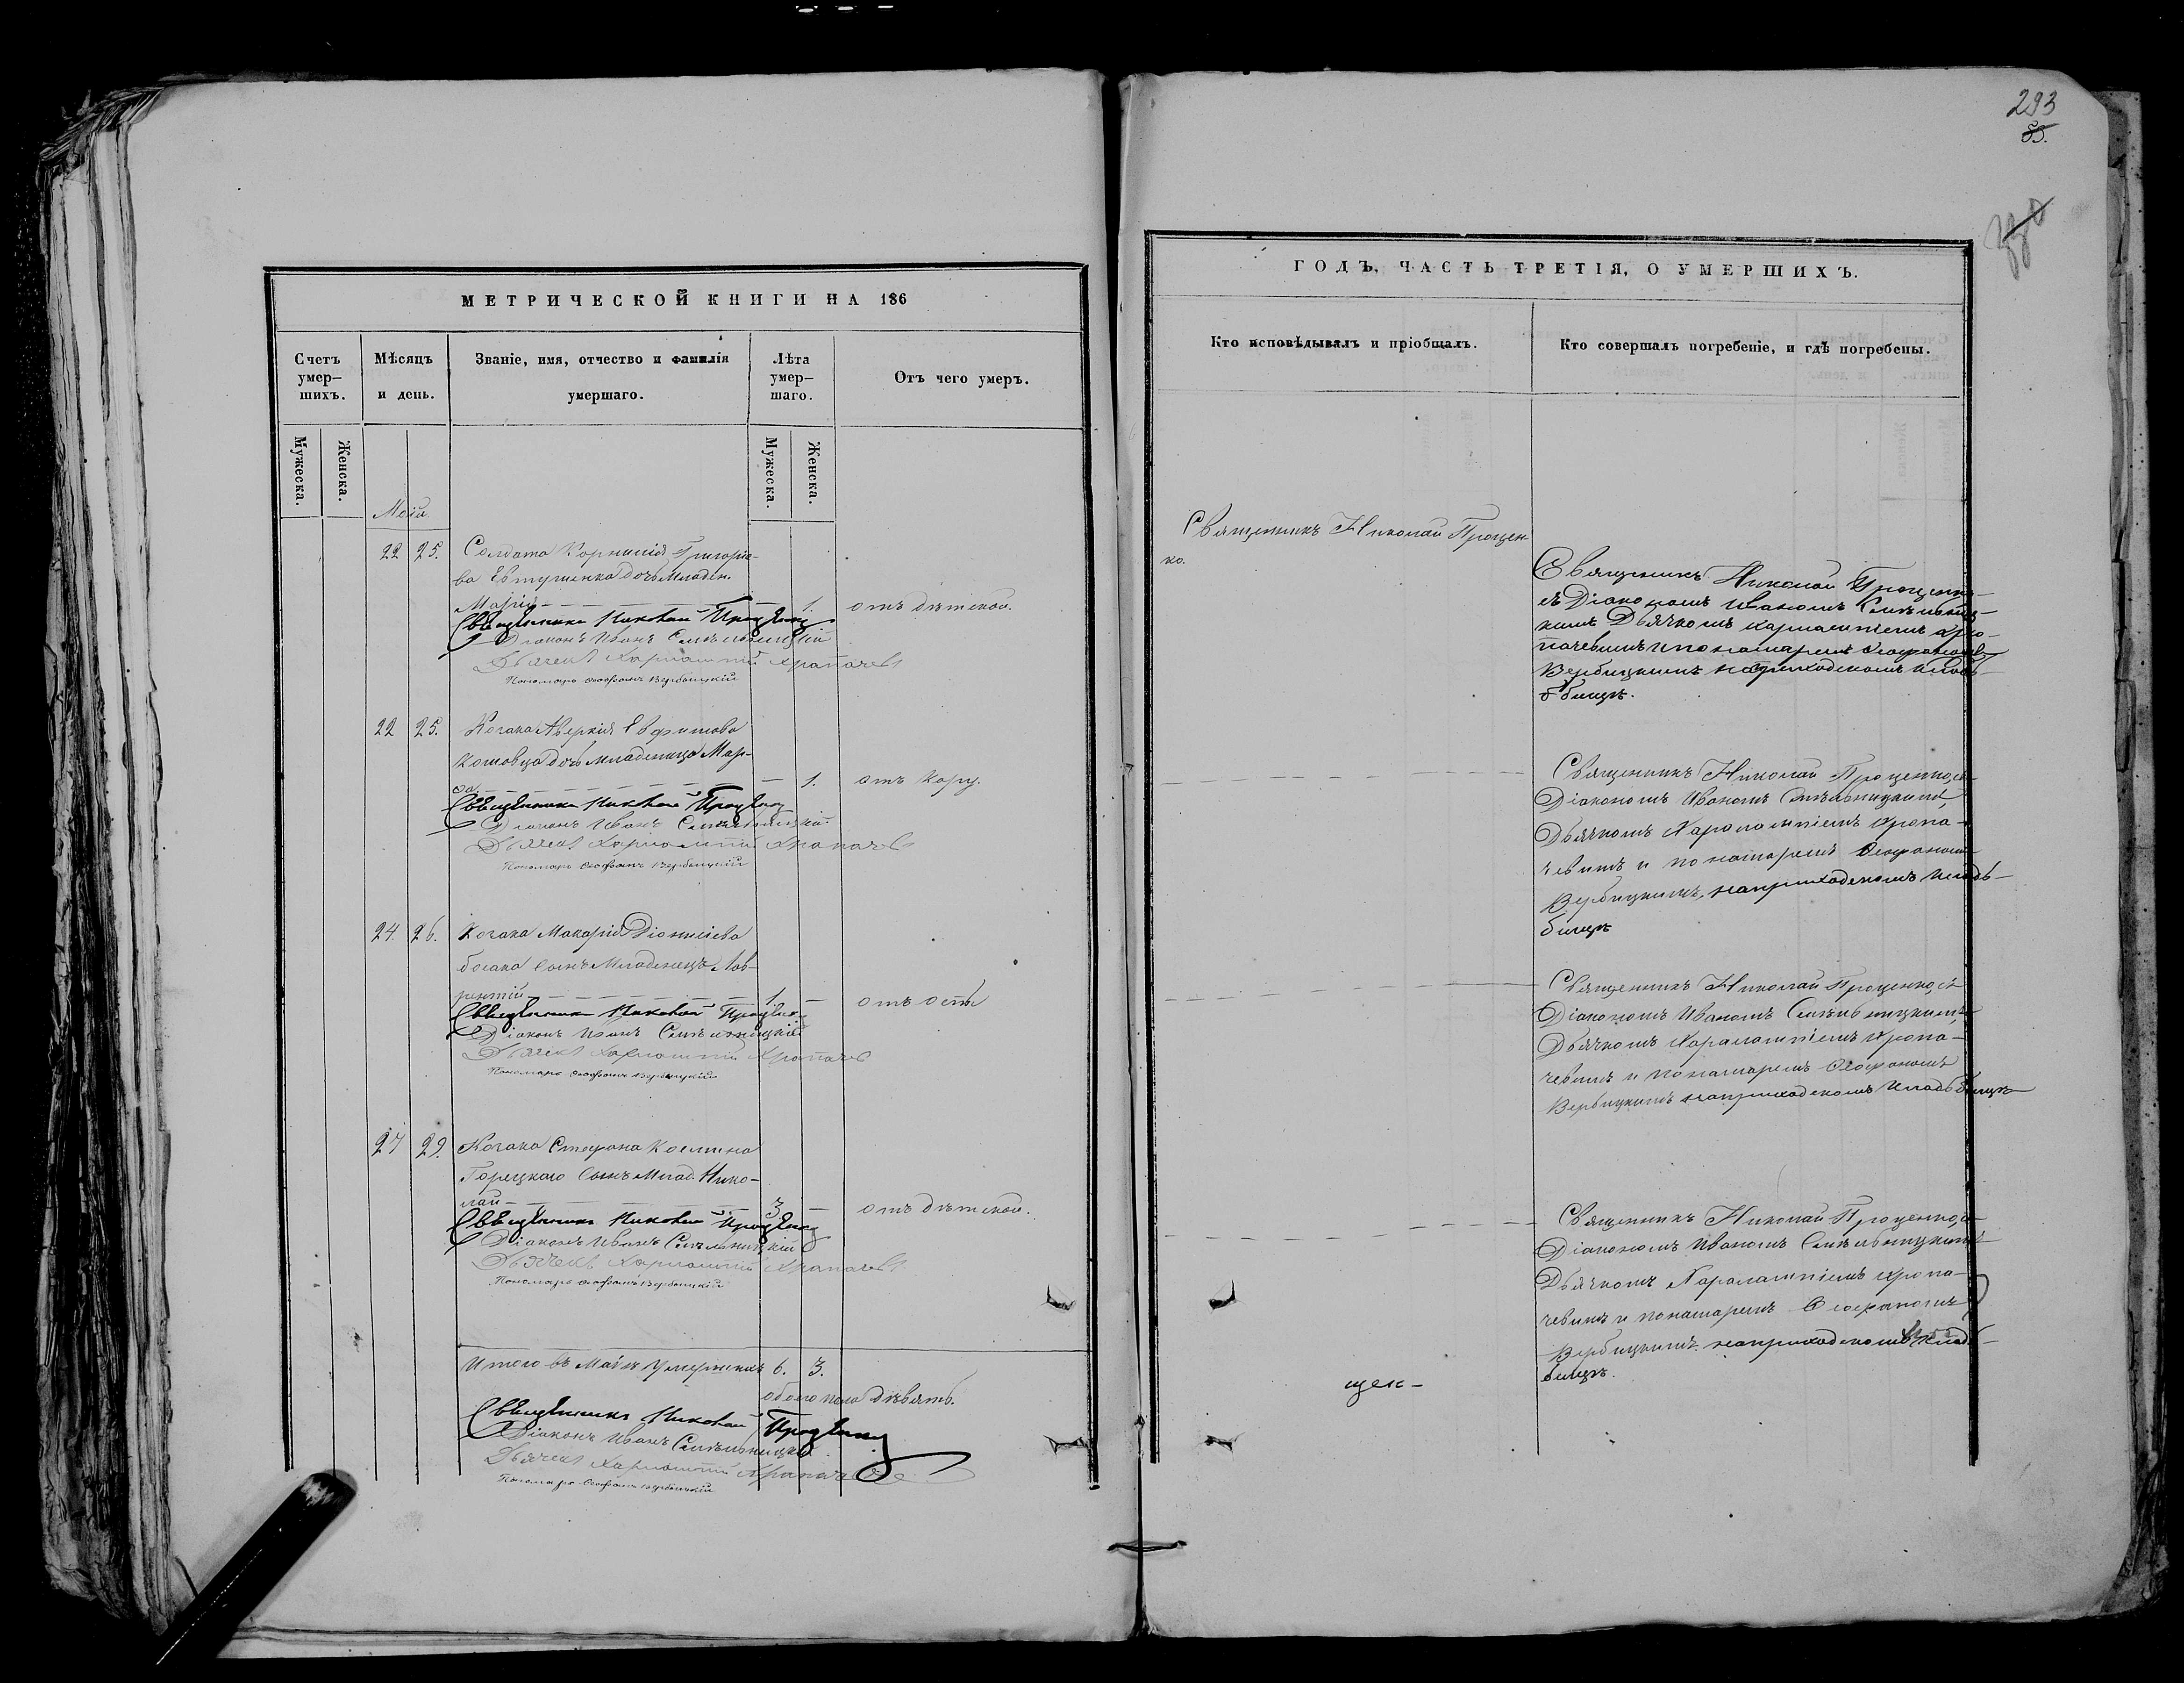 МЕТРИЧЕСКОЙ КНИГИ НА 186
Счетъ умер–шихъ.
Мѣсяцъ и день.
Званіе, имя, отчество и фамилія умершаго.
Лѣта умер–шаго.
Отъ чего умеръ.
Мужеска.
Женска.
Мужеска.
Женска.
Маія
22 25. Солдата Корнилія Григоріе-
ва Евтушенка дочь младен.
Марія 1. отъ дѣтской.
Священникъ Николай Проценко
Діаконъ Иванъ Смѣльницкій
Дьячекъ Харлампій Храпачевъ
Пономарь Феофанъ Вербицкій
22 25. Козака Аверкія Евфимова
Кошовца дочь младеница Мар-
фа 1. отъ кору.
Священникъ Николай Проценко
Діаконъ Иванъ Смѣльницкій
Дьячекъ Харлампій Храпачевъ
Пономарь Феофанъ Вербицкій
24. 26. Козака Макарія Діонисіева
сынъ младенецъ Лав-
рентій 1. – отъ оспы
Священникъ Николай Проценко
Діаконъ Иванъ Смѣльницкій
Дьячекъ Харлампій Храпачевъ
Пономарь Феофанъ Вербицкій
27 29. Козака Стефана Космина
Горецкаго сынъ млад. Нико-
лай 3 – отъ дѣтской.
Священникъ Николай Проценко
Діаконъ Иванъ Смѣльницкій
Дьячекъ Харлампій Храпачевъ
Пономарь Феофанъ Вербицкій
Итого въ Маіѣ умершихъ 6. 3.
обоего пола дѣвять.
Священникъ Николай Проценко
Діаконъ Иванъ Смѣльницкій
Дьячекъ Харлампій Храпачевъ
Пономарь Феофанъ Вербицкій
293
83.
ГОДЪ, ЧАСТЬ ТРЕТІЯ, О УМЕРШИХЪ.
Кто исповѣдывалъ и пріобщалъ.
Кто совершалъ погребеніе, и гдѣ погребены.
Священникъ Николай Процен
ко.
Священникъ Николай Проценко
съ Діакономъ Иваномъ Смѣльниц-
кимъ Дьячкомъ Харлампіемъ Хра-
пачевымъ и пономаремъ Феофаномъ
Вербицкимъ на приходскомъ клад-
бищѣ.
Священникъ Николай Проценко, съ
Діакономъ Иваномъ Смѣльницкимъ,
Дьячкомъ Харалампіемъ Храпа-
чевымъ и пономаремъ Феофаномъ
Вербицкимъ, на приходскомъ кладъ-
бищѣ
Священникъ Николай Проценко, съ
Діакономъ Иваномъ Смѣльницкимъ
Дьячкомъ Харалампіемъ Храпа-
чевымъ и пономаремъ Феофаномъ
Вербицкимъ на приходскомъ кладьбищѣ
Священникъ Николай Проценко, съ
Діакономъ Иваномъ Смѣльницкимъ
Дьячкомъ Харалампіемъ Храпа-
чевымъ и пономаремъ Феофаномъ
Вербицкимъ на приходскомъ клад-
бищѣ.
щен-